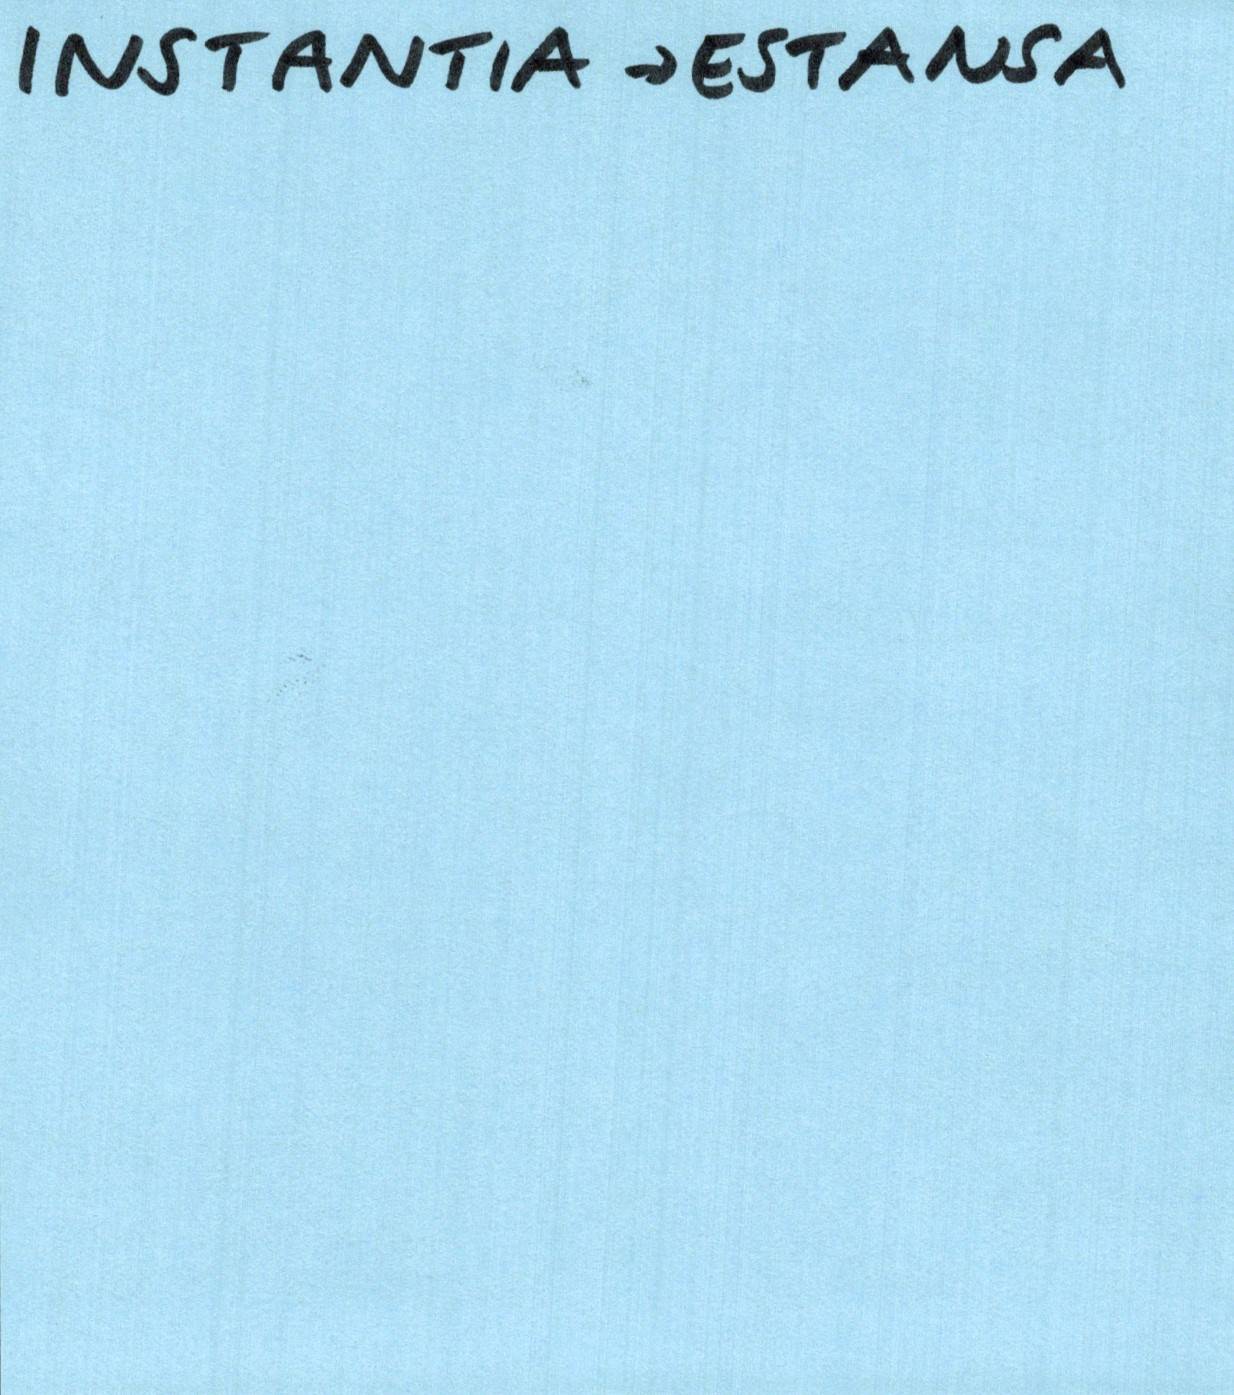 INSTANTIA → ESTANSA